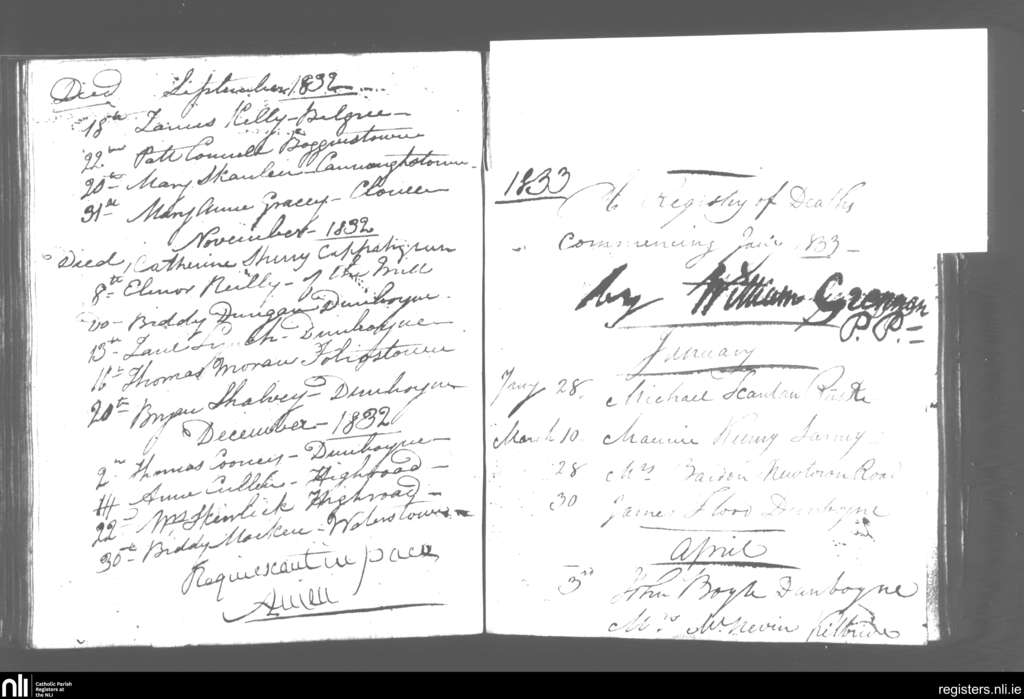 Died September 1832
18th James Kelly - Belgree -
22nd Patt Connell Bogganstown
20th Mary Skanlen - Cannonghstown -
31st Mary Anne Gracey - Clonee
November - 1832
Died, Catherine Sherry
8th Elinor Reilly - of the Mill
20 - Biddy Dungan Dunboyne
13th - Jane - Dunboyne
16th Thomas Moran
20th Bryan Shalvey - Dunboyne
December - 1832
2nd Thomas Cooney - Dunboyne -
14 Anne Cullen - Highroad -
22 - Mrs Skerlick Highroad -
30th - Biddy Macken - Waterstown -
Requiescant in pace
Amen
1833
A Registry of Deaths
Commencing Jany 1833 -
by William Grennan
P. P. -
January
Jany 28. Michael Scanlan
March 10. Maurice
28 Mrs Bardon Newtown Road
30 James Flood Dunboyne
April
3rd John Boyle Dunboyne
Mrs McNevin Kilbride
nli
Catholic Parish
Registers at
the NLI
registers.nli.ie